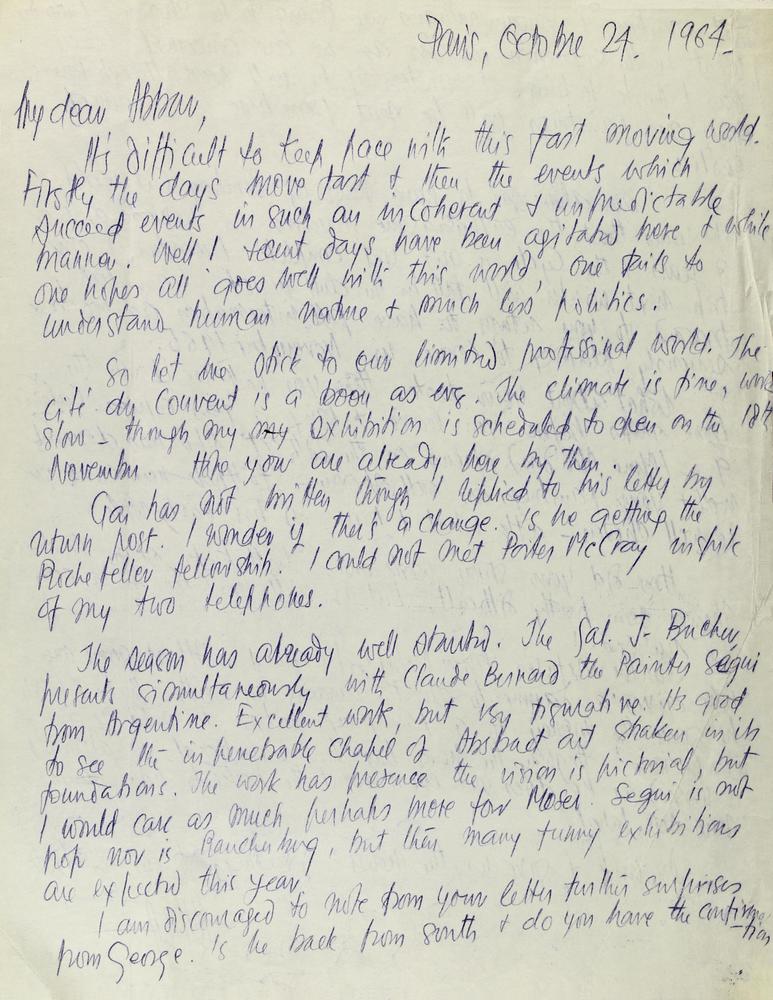 Paris, Octobre 24. 1964_
My dear Abban,
It's difficult to keep pace with this fast moving world.
Firstly the days move fast & then the events which
succeed events in such an incoherent & unpredictable
manner. Well I recent days have been agitated here & while
one hopes all goes well with this world, one fails to
understand human nature & much less politics.
So let me stick to our limited professional world. The
cité du Couvent is a boon as ever. The climate is fine, work
slow _ though my my exhibition is scheduled to open on the 18th
November. Hope you are already here by then.
Gai has not written though I replied to his letter by
return post. I wonder if there's a change. Is he getting the
Rochefeller fellowship. I could not met Porter McCray inspite
of my two telephones.
The season has already well started. The Gal. J- Bucher,
presents simultaneously with Claude Bernard the Painter Segui
from Argentine. Excellent work, but very figurative. Its good
to see the inpenetrable chapel of Abstract art shaken in its
foundations. The work has presence the vision is pictorial, but
I would care as much perhaps more for Moser. Segui is not
pop nor is Rauchenberg, but then many funny exhibitions
are expected this year.
I am discouraged to note from your letter further surprises
from George. Is he back from south & do you have the confirma-
-tion